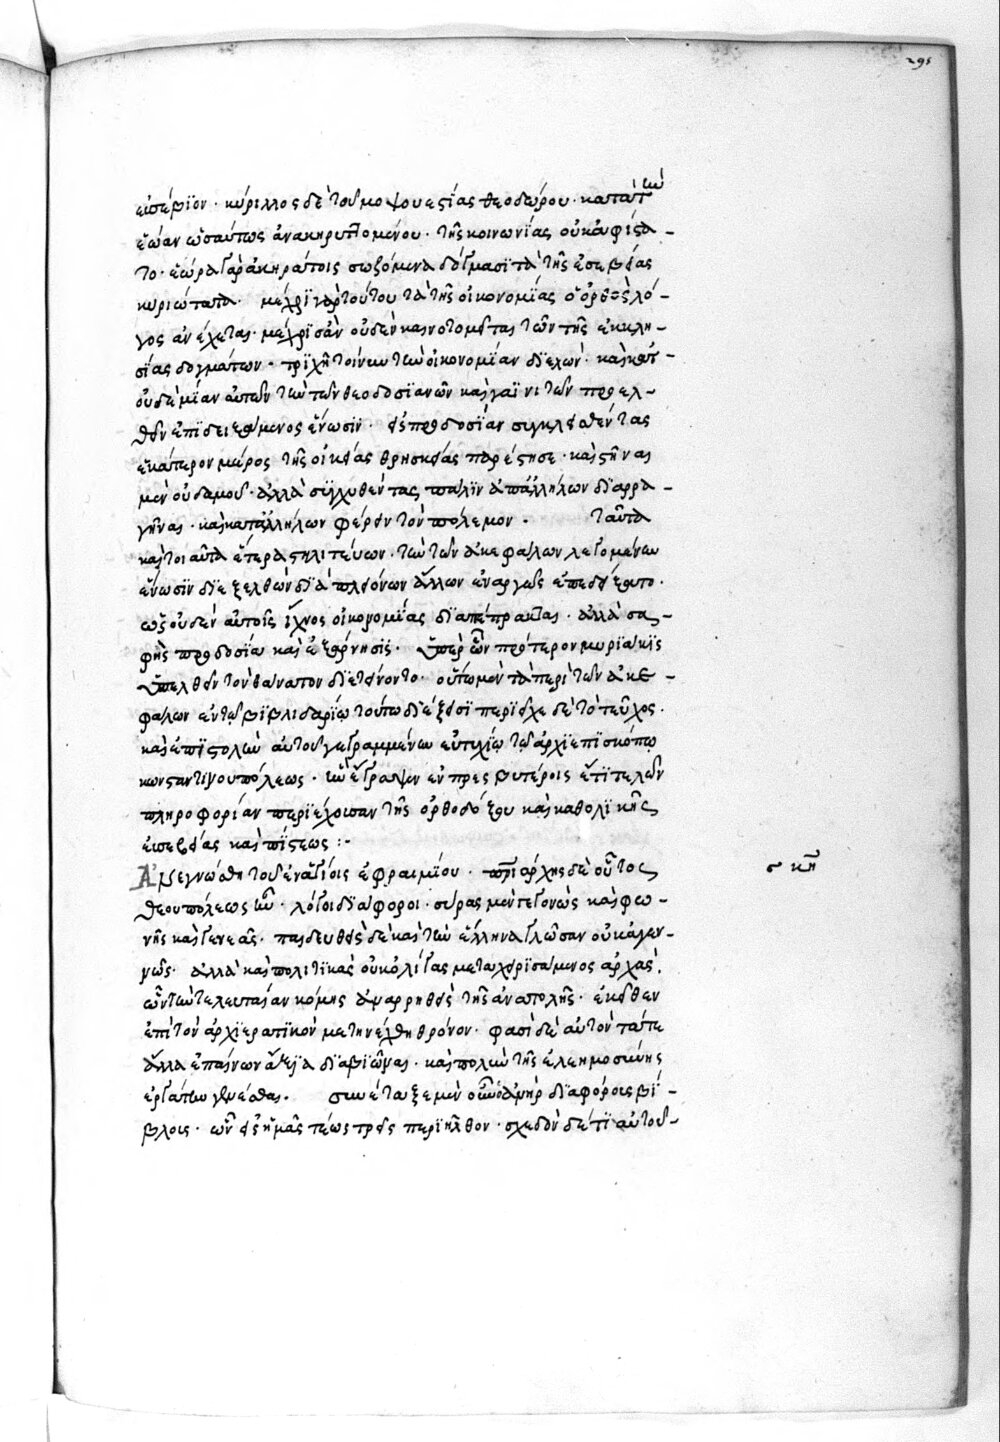 295
εὐσέβϊον · κύριλλος δὲ τοῦ μοψουεστίας θεοδώρου · κατὰ τὴν
ἑῴαν ὡσαύτως ἀνακηρυττομένου · τῆς κοινωνίας οὐκ ἀφίστα-
το · ἑώρα γὰρ ἀκηράτοις σωζόμενα δόγμασϊ τὰ τῆς εὐσεβείας
κυριώτατα · μέχρϊ γὰρ τούτου τὰ τῆς οἰκονομίας ὁ ὀρθὸς λό-
γος ἀνέχεται · μέχρϊς ἂν οὐδὲν καινοτομεῖται τῶν τῆς ἐκκλη-
σίας δογμάτων · τριχῆ τοίνυν τὴν οἰκονομίαν διελὼν · καὶ κατ'
οὐδεμίαν αὐτῶν τὴν τῶν θεοδοσϊανῶν καὶ γαϊνιτῶν προελ-
θεῖν ἐπϊδειξάμενος ἕνωσϊν · εἰς προδοσίαν συγκλεισθέντας
ἑκάτερον μέρος τῆς οἰκείας θρησκείας παρέστησε · καὶ στῆναι
μὲν οὐδαμοῦ · ἀλλὰ συγχυθέντας πάλϊν ἀπ' ἀλλήλων διαρρα-
γῆναι · καὶ κατ' ἀλλήλων φέρειν τὸν πόλεμον · ταῦτα
καὶ τοιαῦτα ἕτερα στηλιτεύων · τὴν τῶν ἀκεφάλων λεγομένην
ἕνωσϊν διεξελθὼν διὰ πλειόνων ἄλλων ἐναργῶς ἐπεδείξατο ·
ὡς οὐδὲν αὐτοῖς ἴχνος οἰκονομίας διαπέπρακται · ἀλλὰ σα-
φὴς προδοσία καὶ ἐξάρνησϊς · ὑπὲρ ὧν πρότερον μυριάκϊς
ὑπελθεῖν τὸν θάνατον διετείνοντο · οὕτω μὲν τὰ περὶ τῶν ἀκε-
φάλων ἐν τῷ βϊβλιδαρίῳ τούτῳ διέξεισϊ περιεῖχε δὲ τὸ τεῦχος ·
καὶ ἐπϊστολὴν αὐτοῦ γεγραμμένην εὐτυχίῳ τῷ ἀρχϊεπϊσκόπῳ
κωνσταντϊνουπόλεως · ἣν ἔγραψεν ἐν πρεσβυτέροις ἔτϊ τελῶν
πληροφορίαν περϊέχουσαν τῆς ὀρθοδόξου καὶ καθολϊκῆς
εὐσεβείας καὶ πίστεως :-
Ἀνεγνώσθη τοῦ ἐν ἁγίοις ἐφραιμίου · πατριάρχης δὲ οὗτος
θεουπόλεως ἦν · λόγοι διάφοροι · σύρας μὲν γεγονὼς καὶ φω-
νῆς καὶ γενεᾶς · παιδευθεὶς δὲ καὶ τὴν ἑλλήνα γλῶσσαν οὐκ ἀγεν-
νῶς · ἀλλὰ καὶ πολιτϊκὰς οὐκ ὀλίγας μεταχειρϊσάμενος ἀρχάς ·
ὧν τὴν τελευταίαν κόμης ἀναρρηθεὶς τῆς ἀνατολῆς · ἐκεῖθεν
ἐπὶ τὸν ἀρχϊερατϊκὸν μετηνέχθη θρόνον · φασὶ δὲ αὐτὸν τά τε
ἄλλα ἐπαίνων ἄξϊα διαβϊῶναι · καὶ πολὺν τῆς ἐλεημοσύνης
ἐργάτην γενέσθαι · συνέταξε μὲν οὖν ὁ ἀνὴρ διαφόροις βϊ-
βλοις · ὧν εἰς ἡμᾶς τέως τρεῖς περιῆλθον · σχεδὸν δέ τϊ αὐτοῦ-